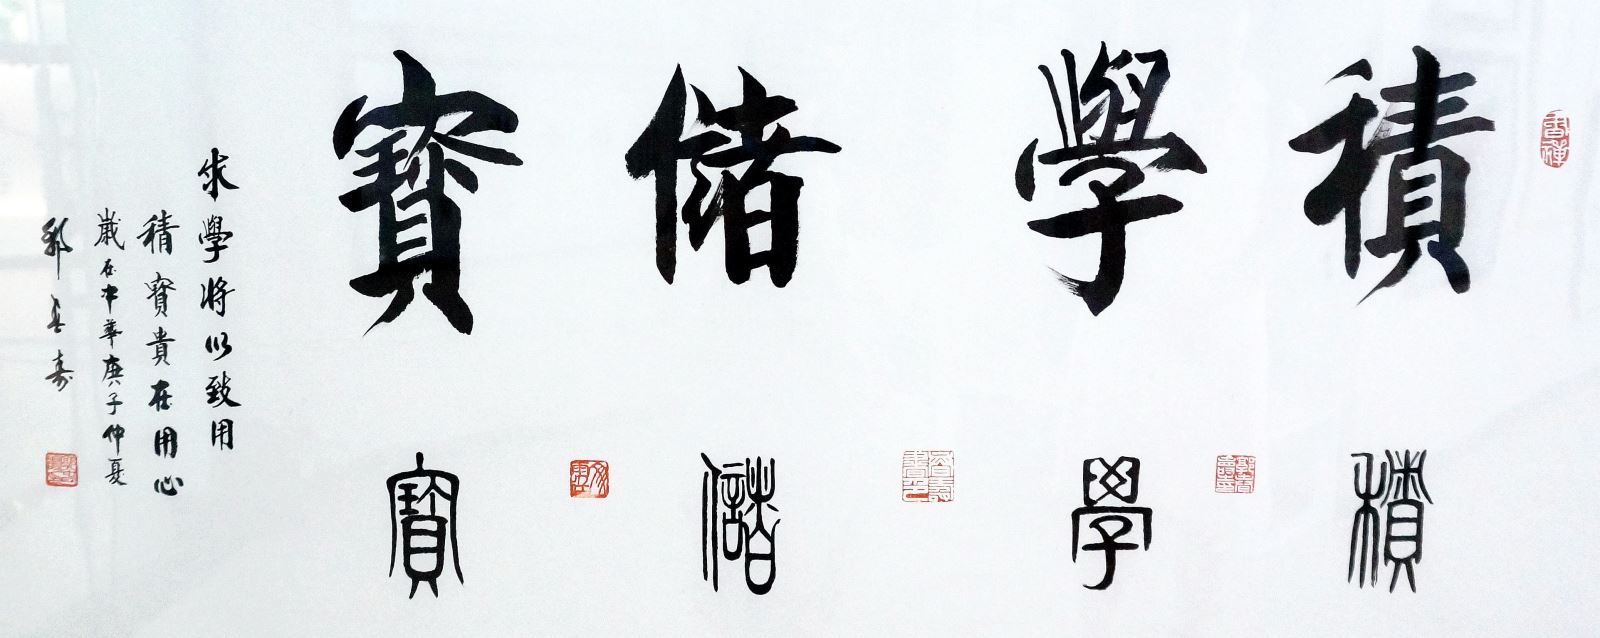 積學儲寶
積學儲寶
求學將以致用
積寶貴在用心
歲在中華庚子仲夏